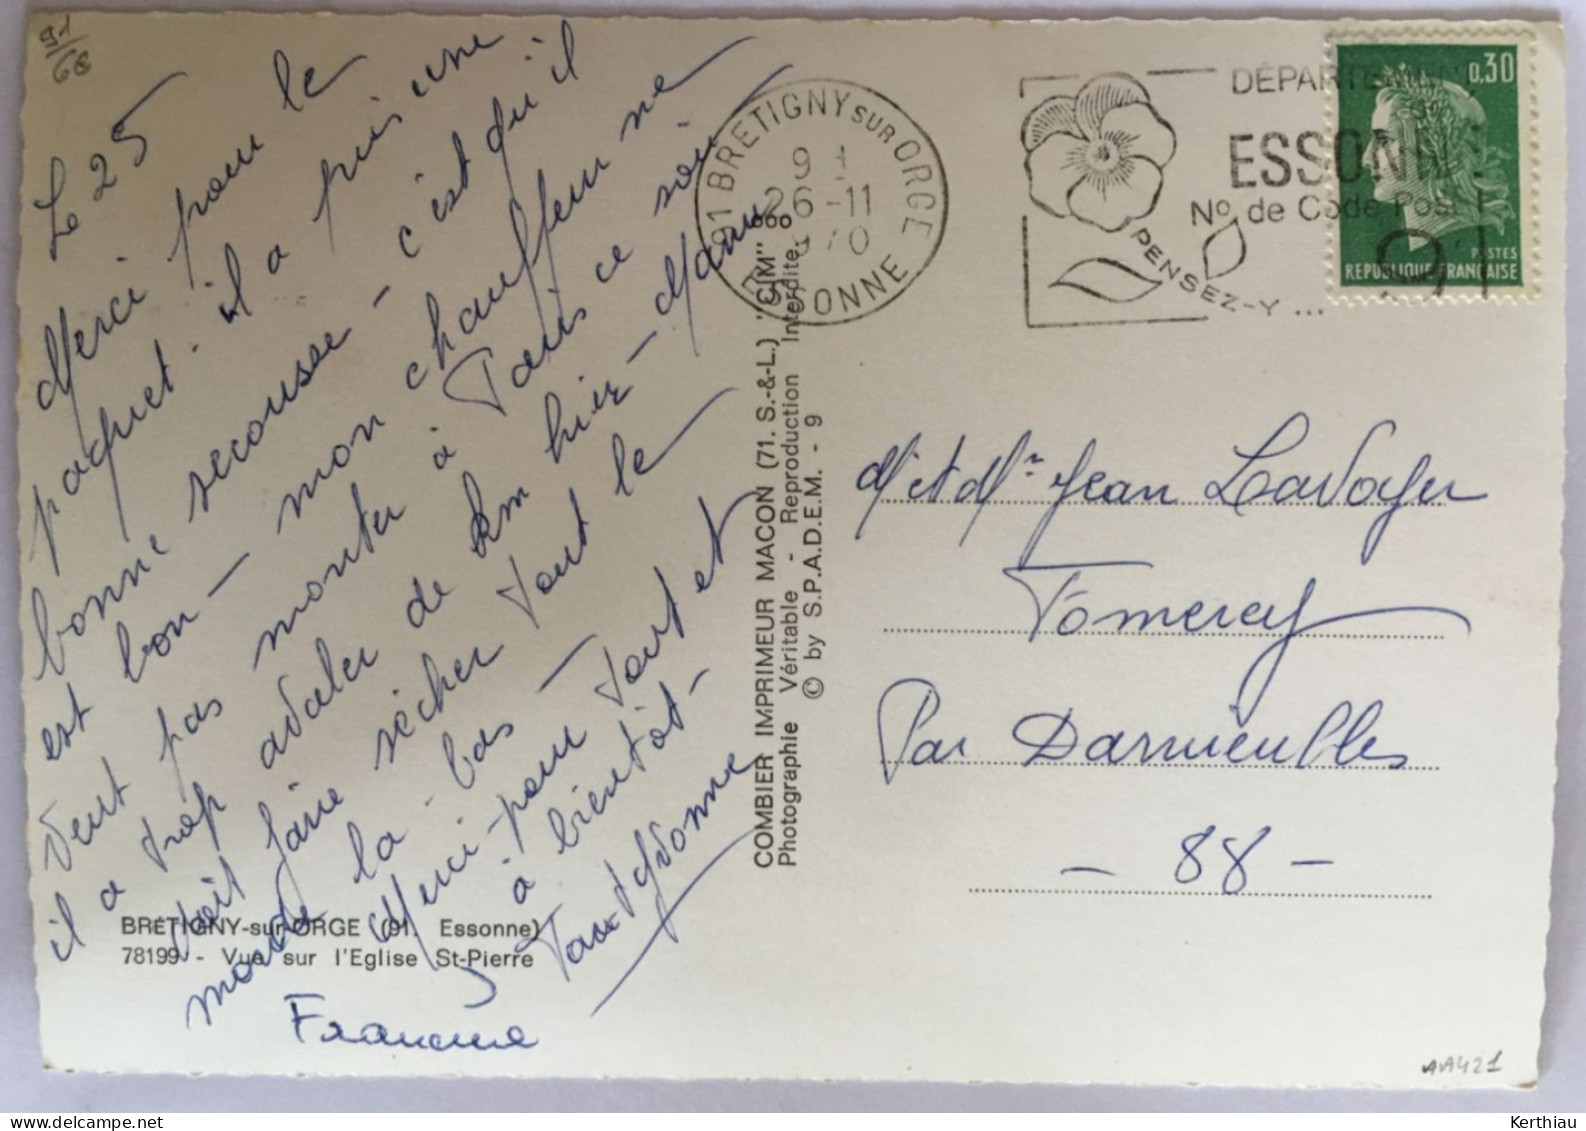 91
68
Le 25
Merci pour le
paquet. il a pris une
bonne secousse - c'est qu'il
est bon - mon chauffeur ne
veut pas monter à Paris ce soir
il a trop avaler de km hier - Maman
doit faire sécher tout le
monde la-bas -
Merci pour tout et
à bientôt -
Yvonne
Francine
BRÉTIGNY-sur-ORGE (91. Essonne)
78199 - Vue sur l'Eglise St-Pierre
COMBIER IMPRIMEUR MACON (71. S.-&-L.) "CIM"
Photographie Véritable - Reproduction Interdite
© by S.P.A.D.E.M. - 9
91 BRETIGNY SUR ORGE
26-11
ESSONNE
PENSEZ-Y ...
DÉPARTEMENT
ESSONNE
No de Code Postal
91
0,30
POSTES
REPUBLIQUE FRANÇAISE
M. et Mme Jean Lavoyer
Tomerey
Par Darnieulles
- 88 -
AA421
Kerthiau